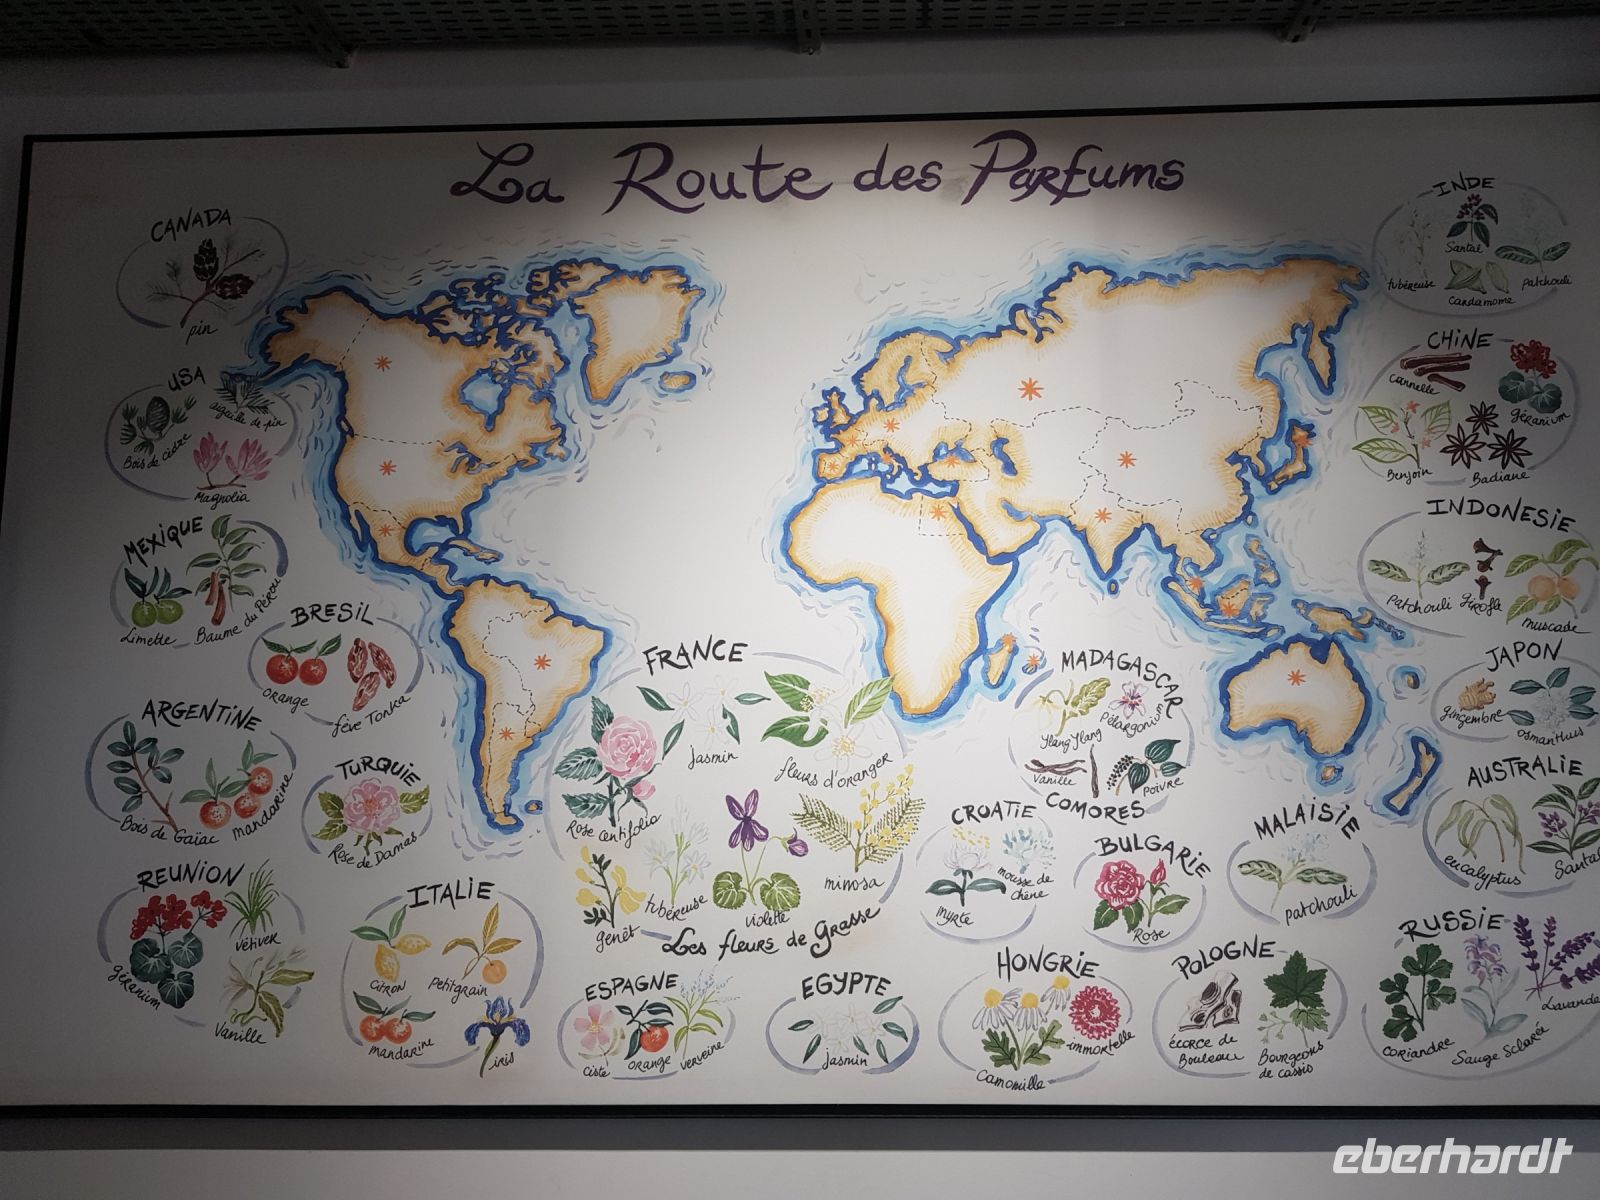 La Route des Parfums
CANADA
pin
USA
Bois de cèdre
aiguille de pin
Magnolia
MEXIQUE
Limette
Baume du Pérou
BRESIL
orange
fève Tonka
ARGENTINE
Bois de Gaïac
mandarine
TURQUIE
Rose de Damas
REUNION
géranium
vétiver
Vanille
ITALIE
citron
Petitgrain
mandarine
iris
FRANCE
Rose Centifolia
Jasmin
fleurs d'oranger
genêt
tubéreuse
violette
mimosa
Les fleurs de Grasse
ESPAGNE
ciste
orange
verveine
EGYPTE
Jasmin
MADAGASCAR
Ylang Ylang
Pélargonium
Vanille
Poivre
COMORES
CROATIE
myrte
mousse de
chêne
BULGARIE
Rose
MALAISIE
patchouli
HONGRIE
camomille
immortelle
POLOGNE
écorce de
Bouleau
Bourgeons
de cassis
RUSSIE
coriandre
Sauge Sclarée
Lavande
INDE
tubéreuse
Santal
Cardamome
patchouli
CHINE
Cannelle
géranium
Benjoin
Badiane
INDONESIE
Patchouli
Girofle
muscade
JAPON
gingembre
osmanthus
AUSTRALIE
eucalyptus
Santal
eberhardt